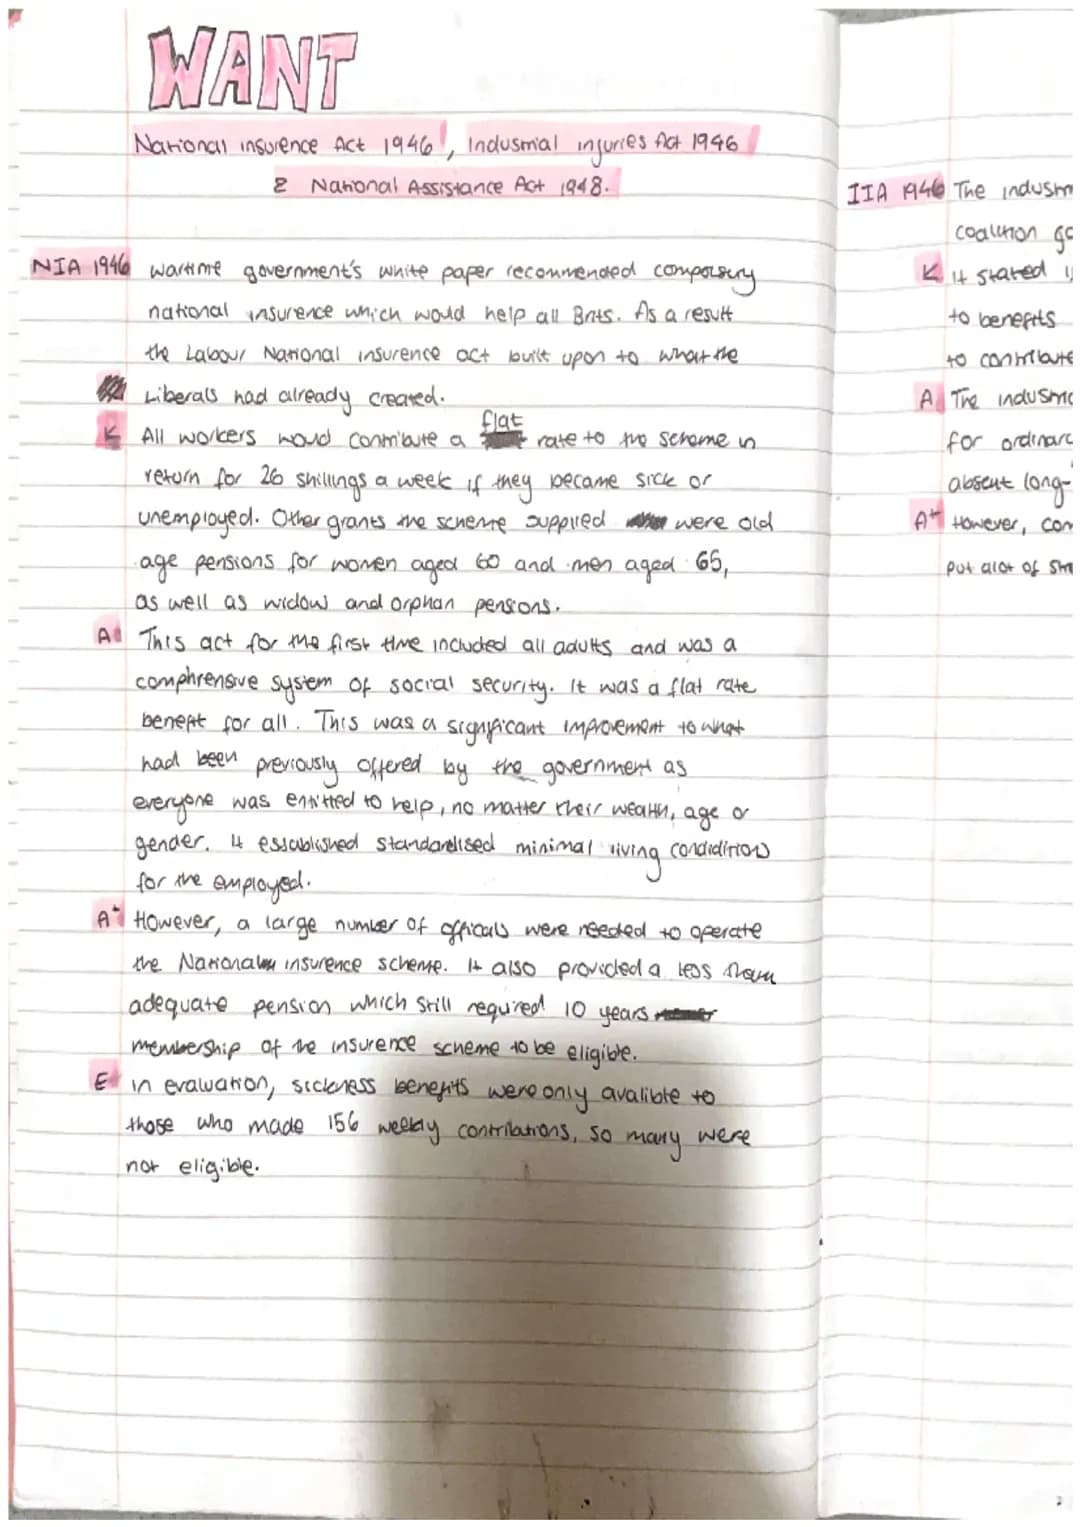 WANT
National insurence Act 1946, Industrial injuries Act 1946
& National Assistance Act 1948.
NIA 1946 wartime government's white paper recommended compolsury
national insurence which would help all Brits. As a result
the Labour National insurence act built upon to what the
Liberals had already created.
flat
K All workers would contribute a rate to the scheme in
return for 26 shillings a week if they became sick or
unemployed. Other grants the scheme supplied were old
age pensions for women aged 60 and men aged 65,
as well as widow and orphan pensions.
A This act for the first time included all adults and was a
comphrensive system of social security. It was a flat rate
benefit for all. This was a significant improvement to what
had been previously offered by the government as
everyone was entitled to help, no matter their wealth, age or
gender. It established standardised minimal living condidition
for the employed.
A+ However, a large number of officals were needed to operate
the National insurence scheme. It also provided a less than
adequate pension which still required 10 years
membership of the insurence scheme to be eligible.
E in evaluation, sickness benefits were only avalible to
those who made 156 weekly contributions, so many were
not eligible.
IIA 1946 The industr
coalition go
K it stated
to benefits
to contribute
A The industr
for ordinar
absent long-
A+ However, com
put alot of str